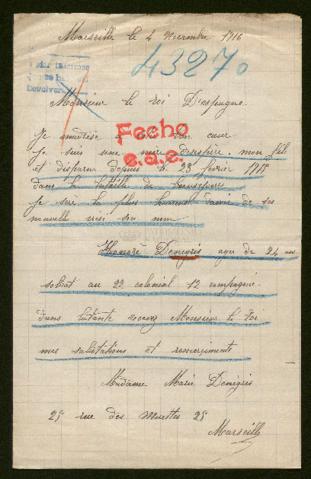 Marseille le 4 Decembre 1916
43270
Monsieur le roi D'espagne
Fecho
e.a.e.
je suis une mere desespere mon fil
et disparu depuis le 23 fevrier 1915
dans la bataille de
je sui la plus davoir de ses
nouvelle voici son nom
Honoré Denegris age de 24 an
soldat au 22 colonial 12 compagnie
dans latante recevez Monsieur le roi
mes salutations et remerciments
Madame Marie Denegris
25 rue des Muettes 25
Marseille